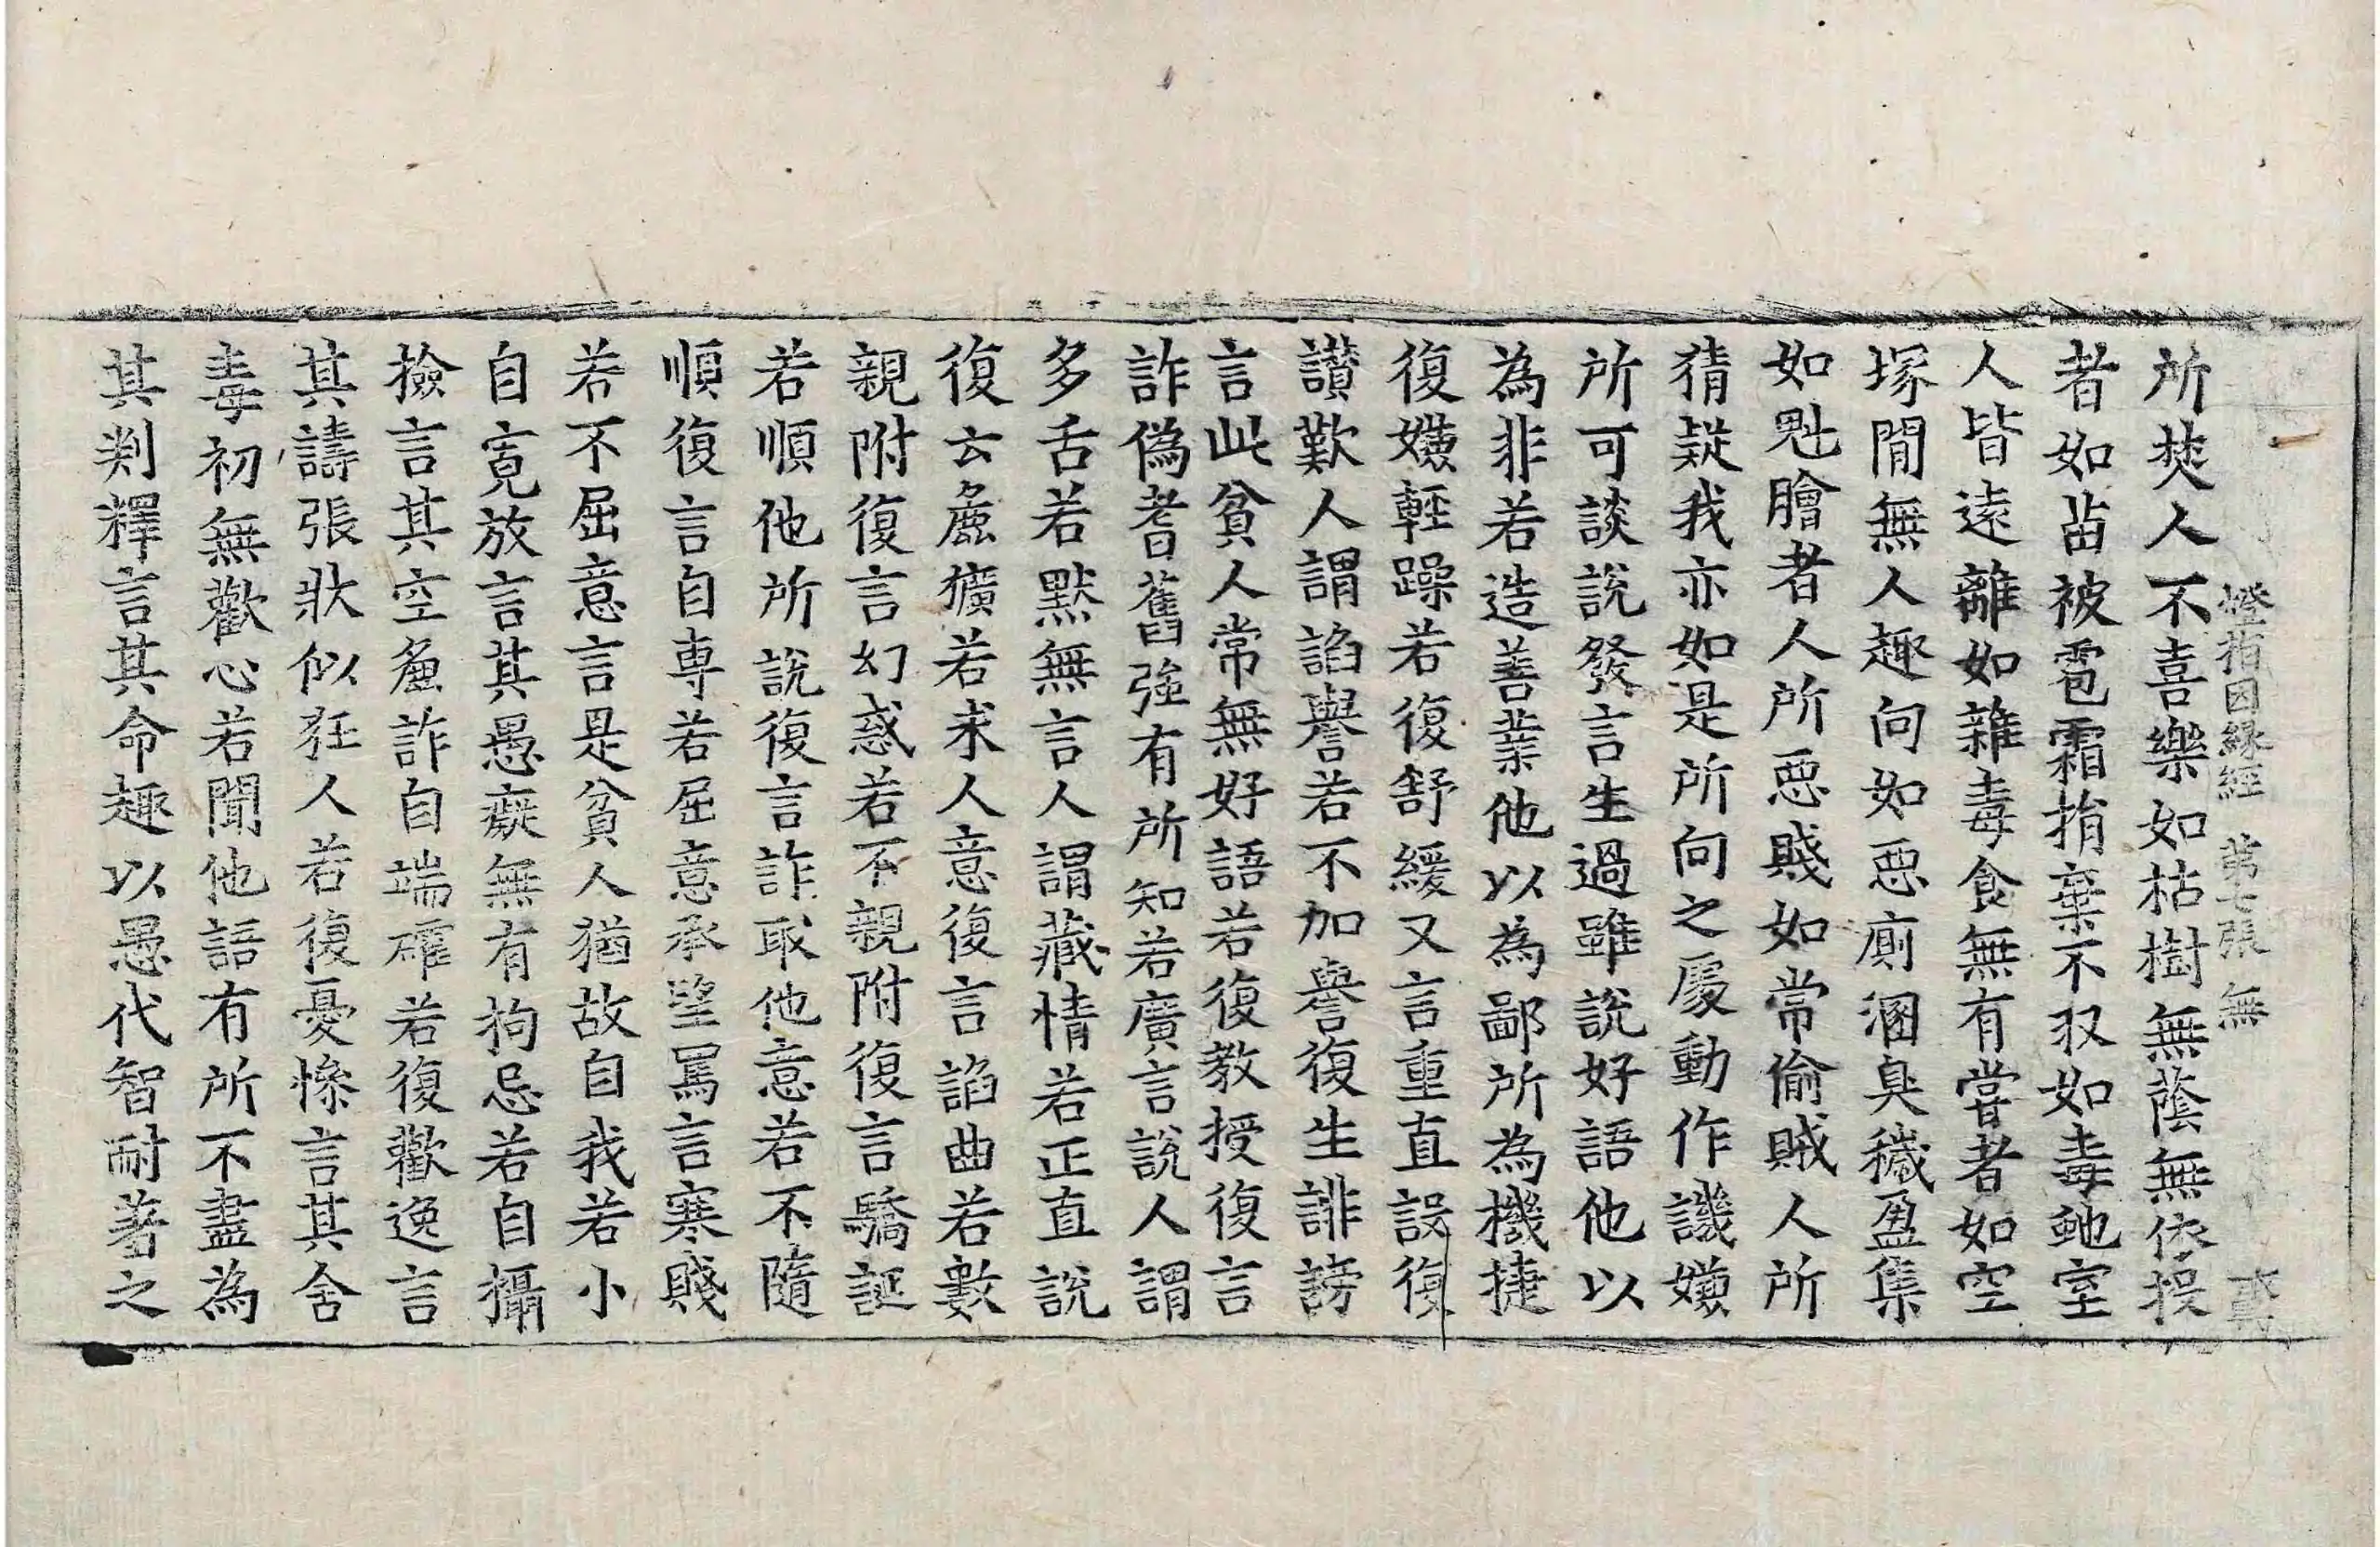 燈指因緣經 第七張 無
所焚人不喜樂如枯樹無蔭無依投
者如苗被雹霜捐棄不収如毒虵室
人皆遠離如雜毒食無有甞者如空
塚閒無人趣向如惡廁溷臭穢盈集
如魁膾者人所惡賤如常偷賊人所
猜疑我亦如是所向之處動作譏嫌
所可談說發言生過雖說好語他以
為非若造善業他以為鄙所為機捷
復嫌輕躁若復舒緩又言重直設復
讃歎人謂諂譽若不加譽復生誹謗
言此貧人常無好語若復教授復言
詐偽耆舊強有所知若廣言說人謂
多舌若默無言人謂藏情若正直說
復云麁獷若求人意復言諂曲若數
親附復言幻惑若不親附復言驕誕
若順他所說復言詐取他意若不隨
順復言自專若屈意承望罵言寒賤
若不屈意言是貧人猶故自我若小
自寬放言其愚癡無有拘忌若自攝
撿言其空麁詐自端確若復歡逸言
其譸張狀似狂人若復憂慘言其含
毒初無歡心若聞他語有所不盡為
其判釋言其命趣以愚代智耐羞之